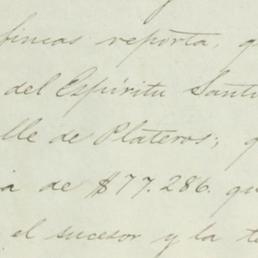 fincas reporta, q
del Espíritu Santo
lle de Plateros; q
a de $77.286. qu
el sucesor y la t